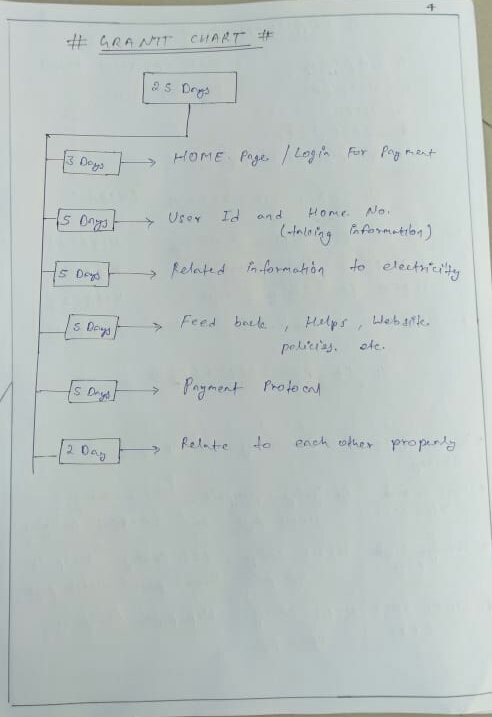 4
# GRANTT CHART #
25 Days
3 Days → HOME Page / Login For Payment
5 Days → User Id and Home No.
(taking information)
5 Days → Related information to electricity
5 Days → Feed back , Helps , Website
policies. etc.
5 Days → Payment Protocal
2 Day → Relate to each other properly